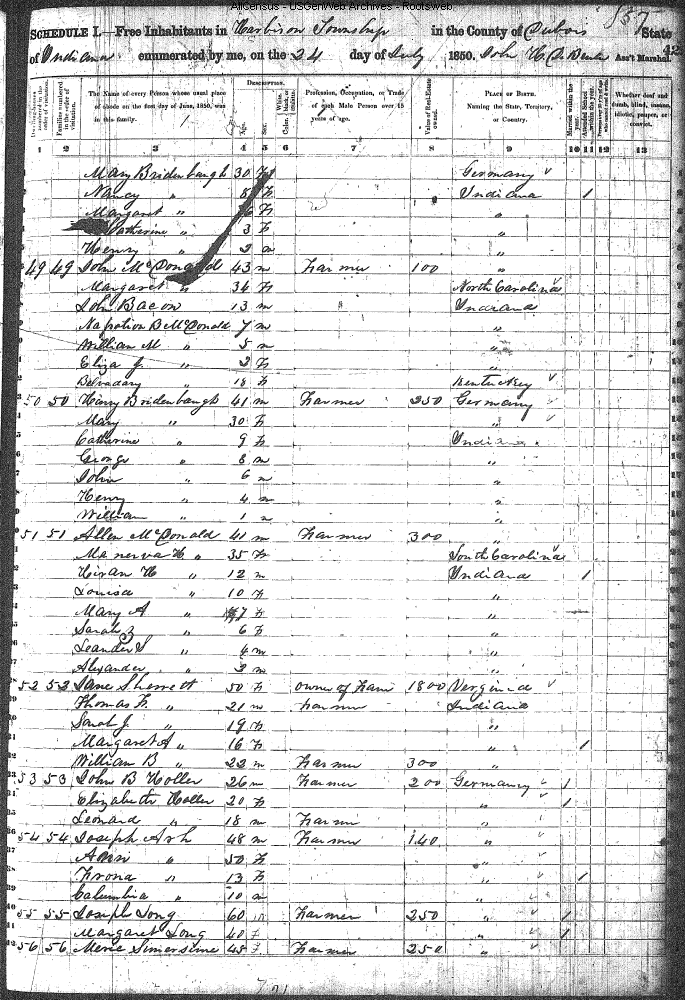 Allcensus - USGenWeb Archives - Rootsweb
SCHEDULE I.—Free Inhabitants in Harbison Township in the County of Dubois State
of Indiana enumerated by me, on the 24 day of July 1850. John Ass't Marshal.
DESCRIPTION.
The Name of every Person whose usual place of abode on the first day of June, 1850, was in this family.
Age.
Sex.
Profession, Occupation, or Trade of each Male Person over 15 years of age.
Value of Real Estate owned
PLACE OF BIRTH. Naming the State, Territory, or Country.
Married within the year.
Whether deaf and dumb, blind, insane, idiotic, pauper, or convict.
1 2 3 4 5 6 7 8 9 10 11 12 13
Mary Bridenbaugh 30 F Germany
Nancy " 8 F Indiana 1
Margaret " 6 F "
Catherine " 3 F "
Henry " 2 m "
49 49 John McDonald 43 m Farmer 100 "
Margaret " 34 F North Carolina
John Bacon 13 m Indiana
Napolion B McDonald 7 m "
William M " 5 m "
Eliza J. " 2 F "
Belvadary " 18 F Kentuckey
50 50 Henry Bridenbaugh 41 m Farmer 250 Germany
Mary " 30 F "
Catherine " 9 F Indiana
George " 8 m "
John " 6 m "
Henry " 4 m "
William " 1 m "
51 51 Allen McDonald 41 m Farmer 300 "
Manerva H " 35 F South Carolina
Hiram H " 12 m Indiana 1
Louisa " 10 F "
Mary A " 7 F "
Sarah Z " 6 F "
Leander S " 4 m "
Alexander " 2 m "
52 52 Jane Sherrett 50 F owner of Farm 1800 Verginia
Thomas F. " 21 m Farmer Indiana
Sarah J. " 19 F "
Margaret A " 16 F " 1
William B " 22 m Farmer 300 "
53 53 John B Holler 26 m Farmer 200 Germany 1
Elizabeth Holler 20 F " 1
Leonard " 18 m Farmer "
54 54 Joseph Ash 48 m Farmer 140 "
Ann " 50 F "
Frona " 13 F " 1
Calumbia " 10 m "
55 55 Joseph Long 60 m Farmer 250 " 1
Margaret Long 40 F " 1
56 56 Merie Simersime 45 F Farmer 250 "